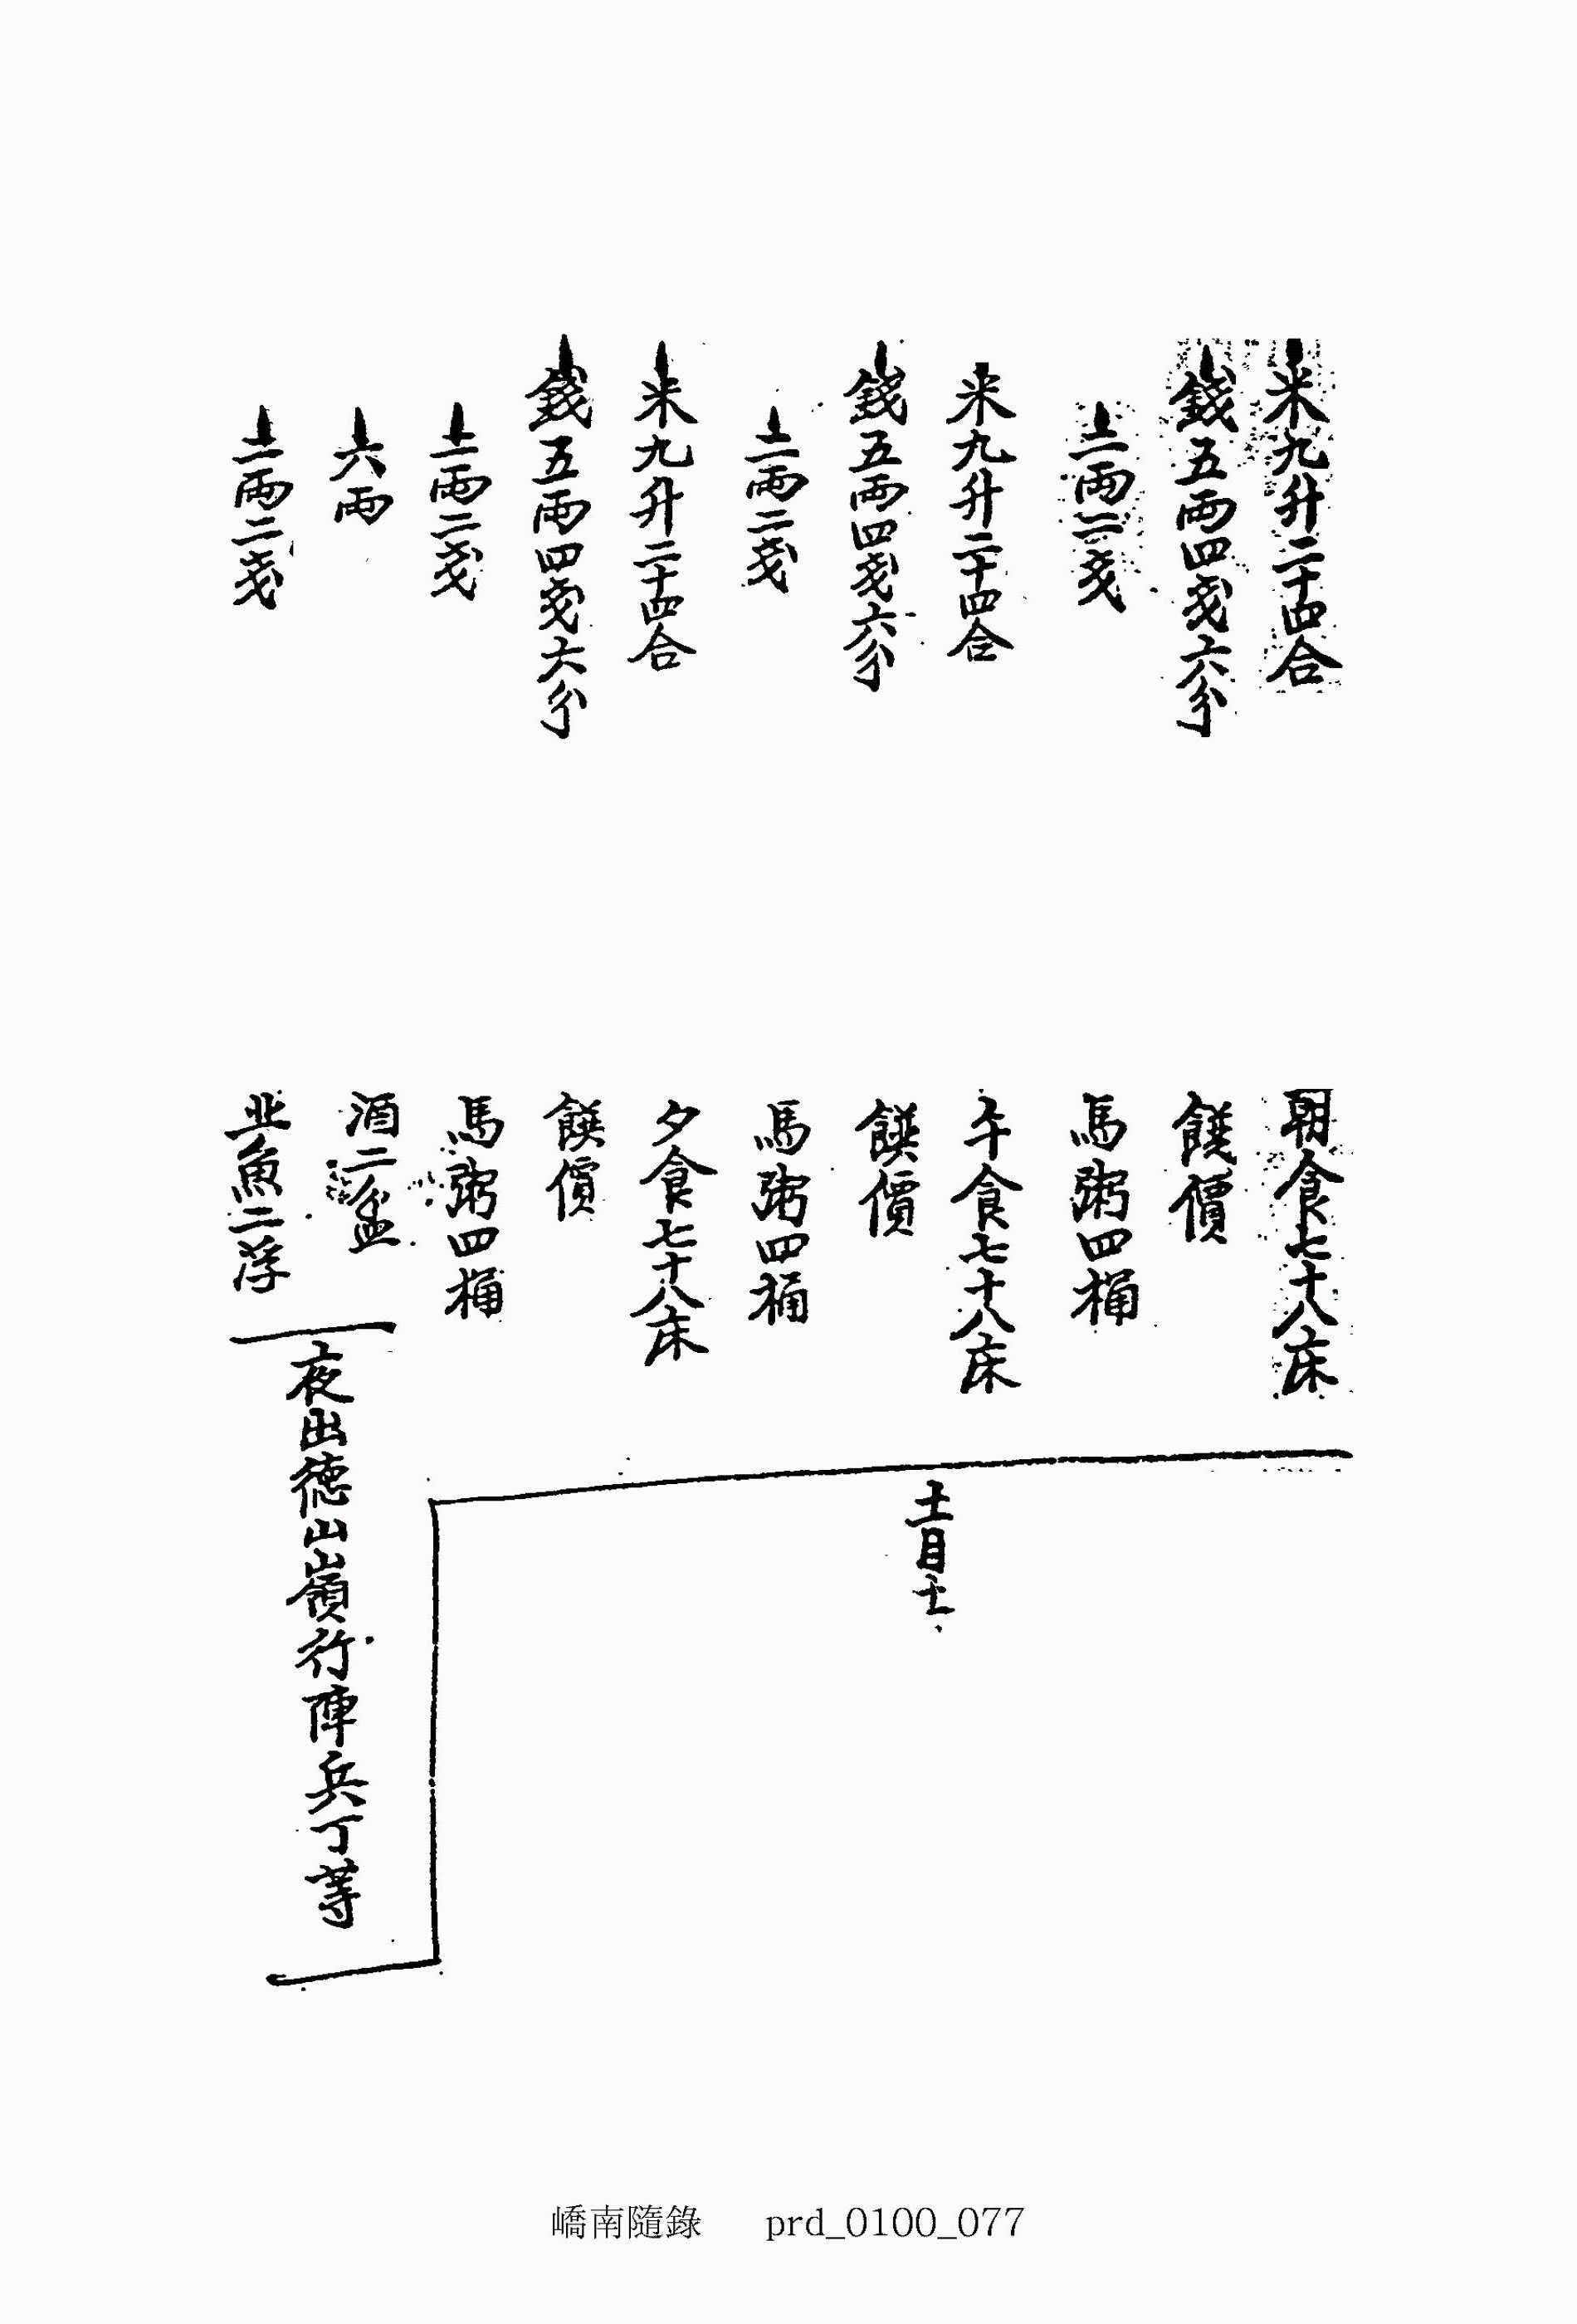 米九升二十四合
朝食七十八床
錢五兩四戔六分
饌價
二兩二戔
馬粥四桶
米九升二十四合
午食七十八床
錢五兩四戔六分
饌價
二兩二戔
馬粥四桶
米九升二十四合
夕食七十八床
錢五兩四戔六分
饌價
二兩二戔
馬粥四桶
十二月十一
六兩
酒二盆
二兩二戔
北魚二浮
夜出德山嶺行陣兵丁等
嶠南隨錄 prd_0100_077